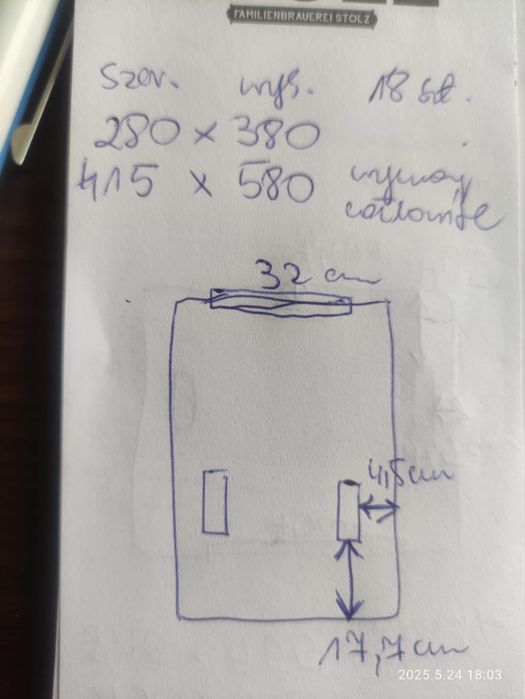 FAMILIENBRAUEREI STOLZ
szer. wys. 18 szt.
280 x 380
415 x 580 wymiary
całkowite
32 cm
4,5 cm
17,7 cm
2025.5.24 18:03